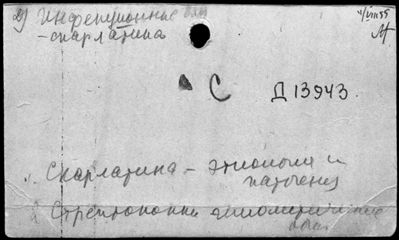 2) Инфекционные бол
- скарлатина
С Д 13943
1. Скарлатина - этиология и
патогенез
2. Стрептококки гемолитические